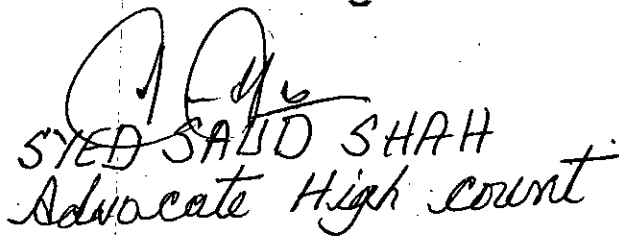 SYED SAUD SHAH
Advocate High count